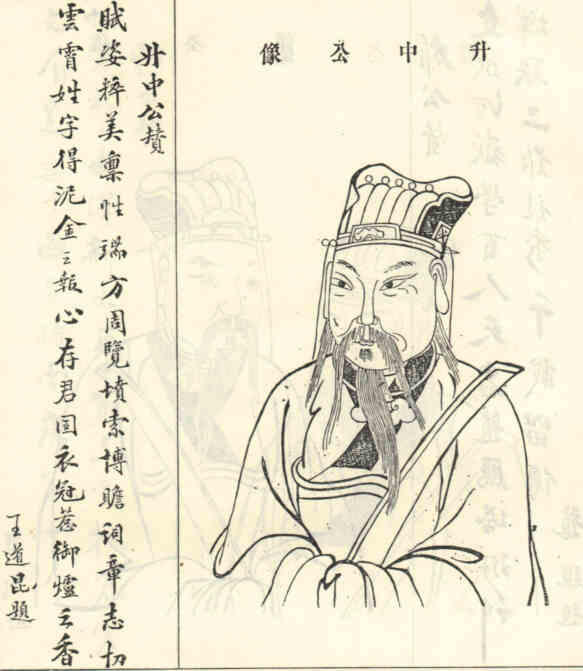 升中公像
升中公贊
賦姿粹美稟性瑞方周覽墳索博瞻詞章志切
雲霄姓字得泥金之報心存君国衣冠惹御爐之香
王道昆題